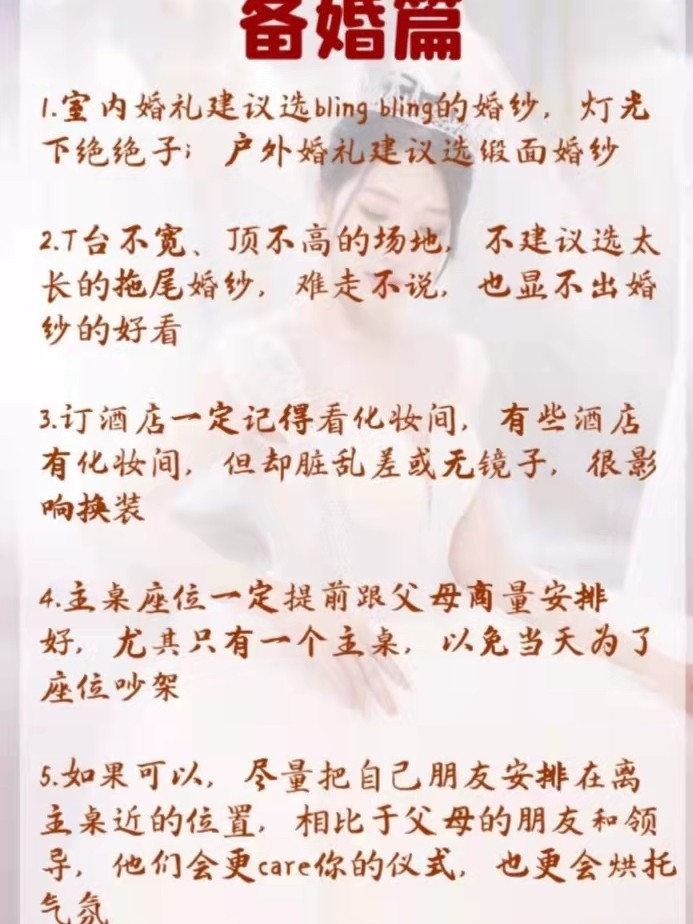 备婚篇
1.室内婚礼建议选bling bling的婚纱，灯光
下绝绝子；户外婚礼建议选缎面婚纱
2.T台不宽、顶不高的场地，不建议选太
长的拖尾婚纱，难走不说，也显不出婚
纱的好看
3.订酒店一定记得看化妆间，有些酒店
有化妆间，但却脏乱差或无镜子，很影
响换装
4.主桌座位一定提前跟父母商量安排
好，尤其只有一个主桌，以免当天为了
座位吵架
5.如果可以，尽量把自己朋友安排在离
主桌近的位置，相比于父母的朋友和领
导，他们会更care你的仪式，也更会烘托
气氛